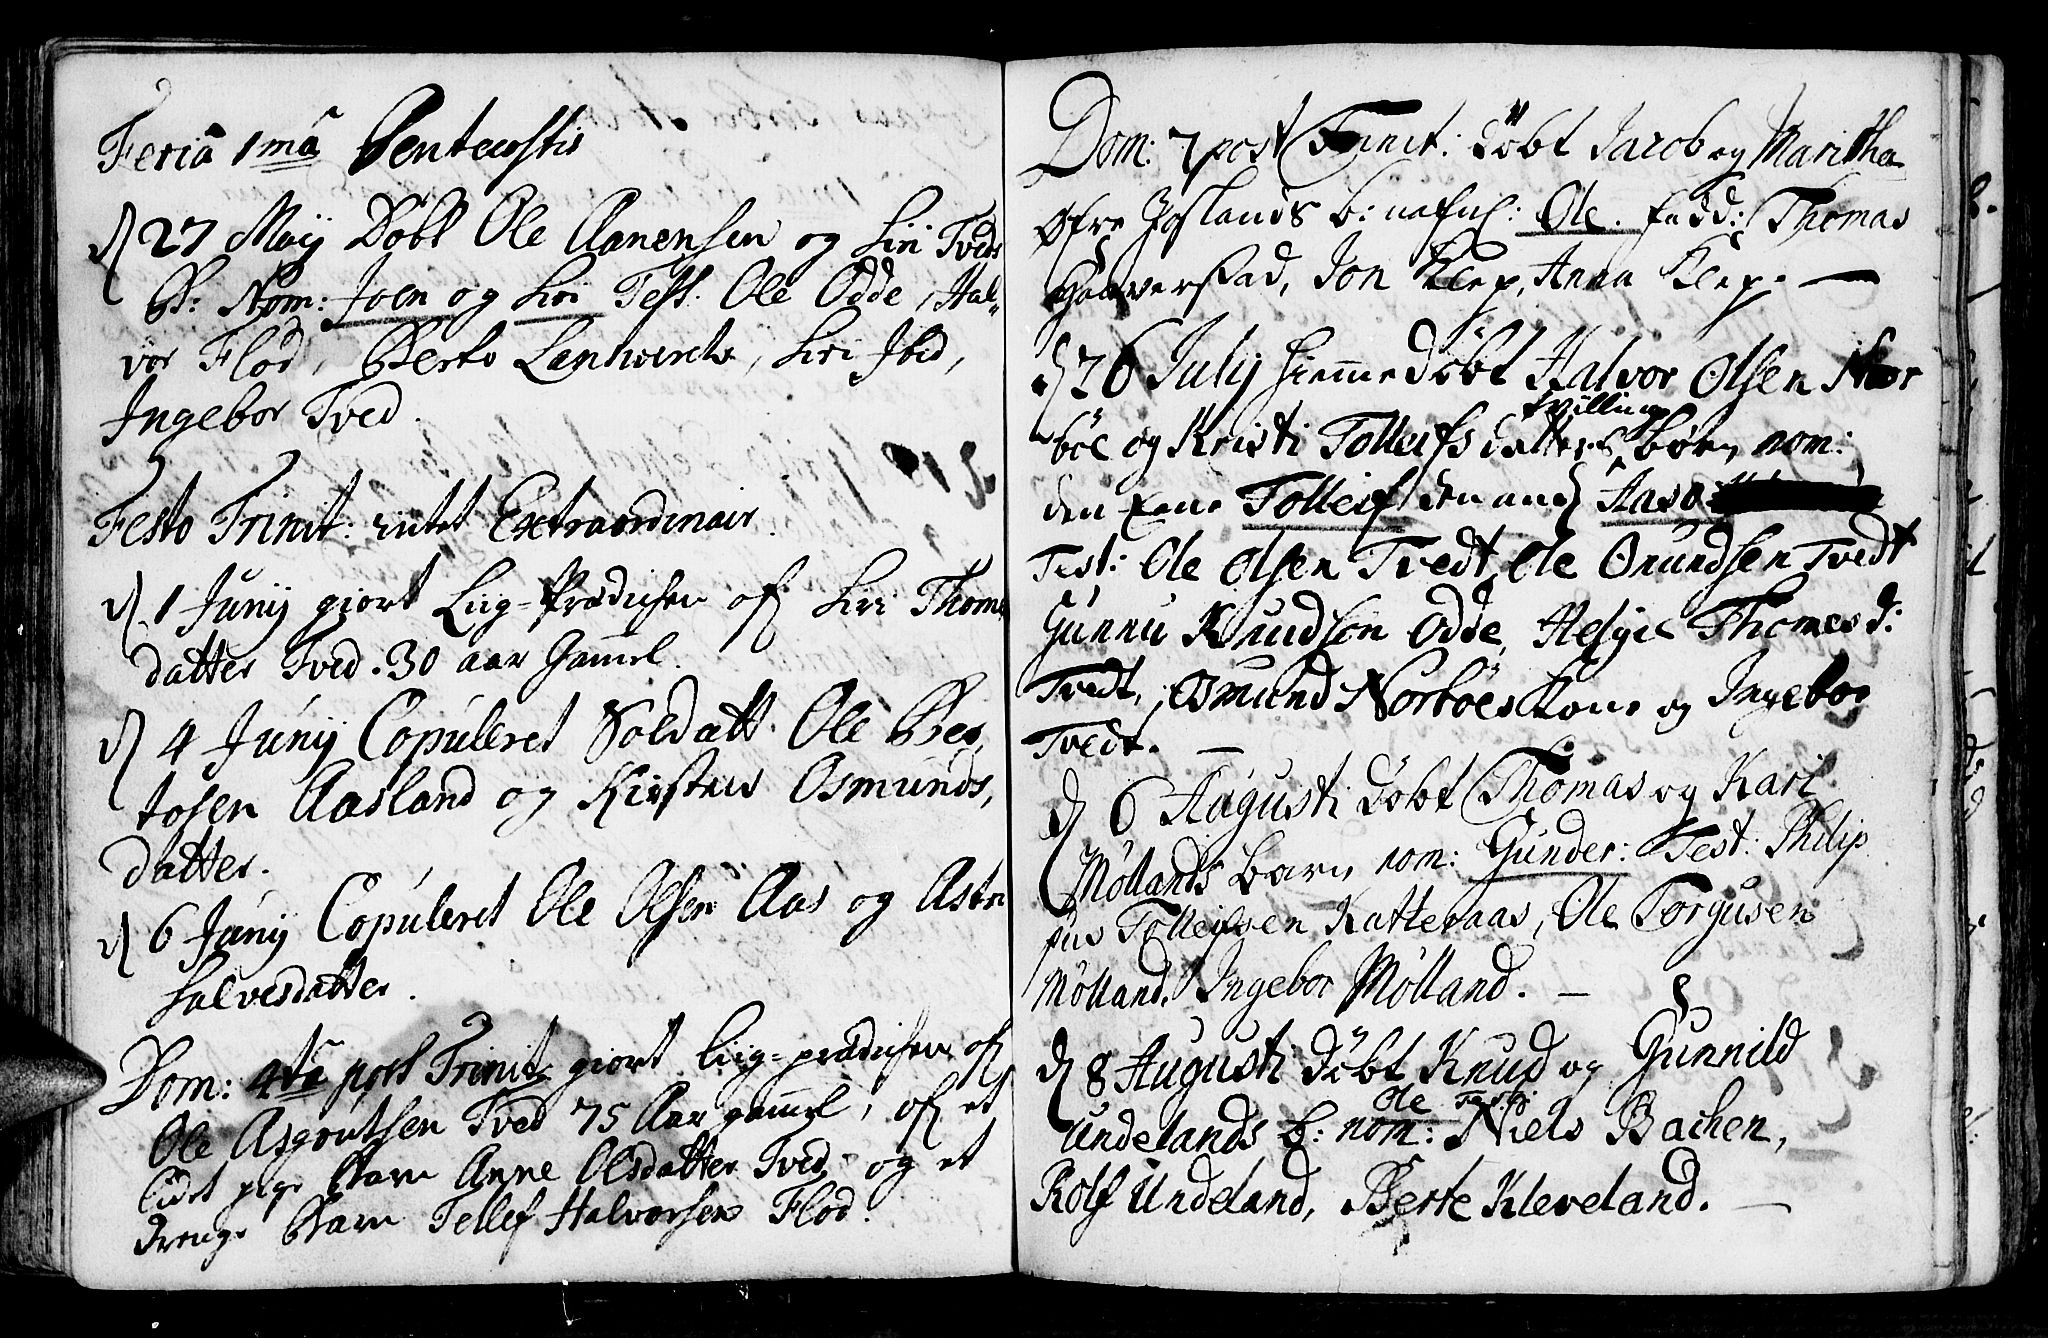 Feria 1mâ Pentecostis
d 27 Maij Döbt Ole Aanensen og Siri Tveds
B: Nom: Joen og Siri Test: Ole Odde, Hal-
vor Flod, Berte Lantveret, Siri Ibid,
Ingebor Tved.
Festo Trinit: intet Extraordinair.
d. 1 Junij giort Liig-Prædichen af Siri Thoms
datter Tved. 30 aar Gamel.
d 4 Junij Copuleret Soldatt Ole Ber,
tosen Aasland og Kirsten Osmunds,
datter.
d 6 Junij Copuleret Ole Olsen Aas og Astri
Salvesdatter.
Dom: 4ta post Trinit giort Liig-prædichen af
Ole Asgoutsen Tved 75 Aar gamel, af et
lidet pige Barn Anne Olsdatter Tved, og et
drenge Barn Tellef Halvorsen Flod.
Dom: 7 post Trinit: döbt Jacob og Maritha
Øfre Joslands b: nafnl: Ole. fadd: Thomas
Gaaverstad, Jon Klep, Anna Klep. —
d 26 Julij hiemmedöbt Halvor Olsen Nor
tvilling
böe og Kristi Tolleifs datters börn, nom:
den Eene Tolleif den and Aaso
Test: Ole Olsen Tvedt, Ole Onundsen Tvedt
Gunnu Knudson Odde, Helge Thomes d:
Tvedt, Osmund Norböes Kone og Ingebor
Tvedt. —
d 6 Augusti döbt Thomas og Kari
Möllands barn, nom: Gunder: Test: Philip
pus Tolleifsen Katteraas, Ole Torgusen
Mölland, Ingebor Mölland. —
d 8 Augusti döbt Knud og Gunnild
Ole Test:
Undelands b: nom: Niels Bachen,
Rolf Undeland, Berte Kleveland. —